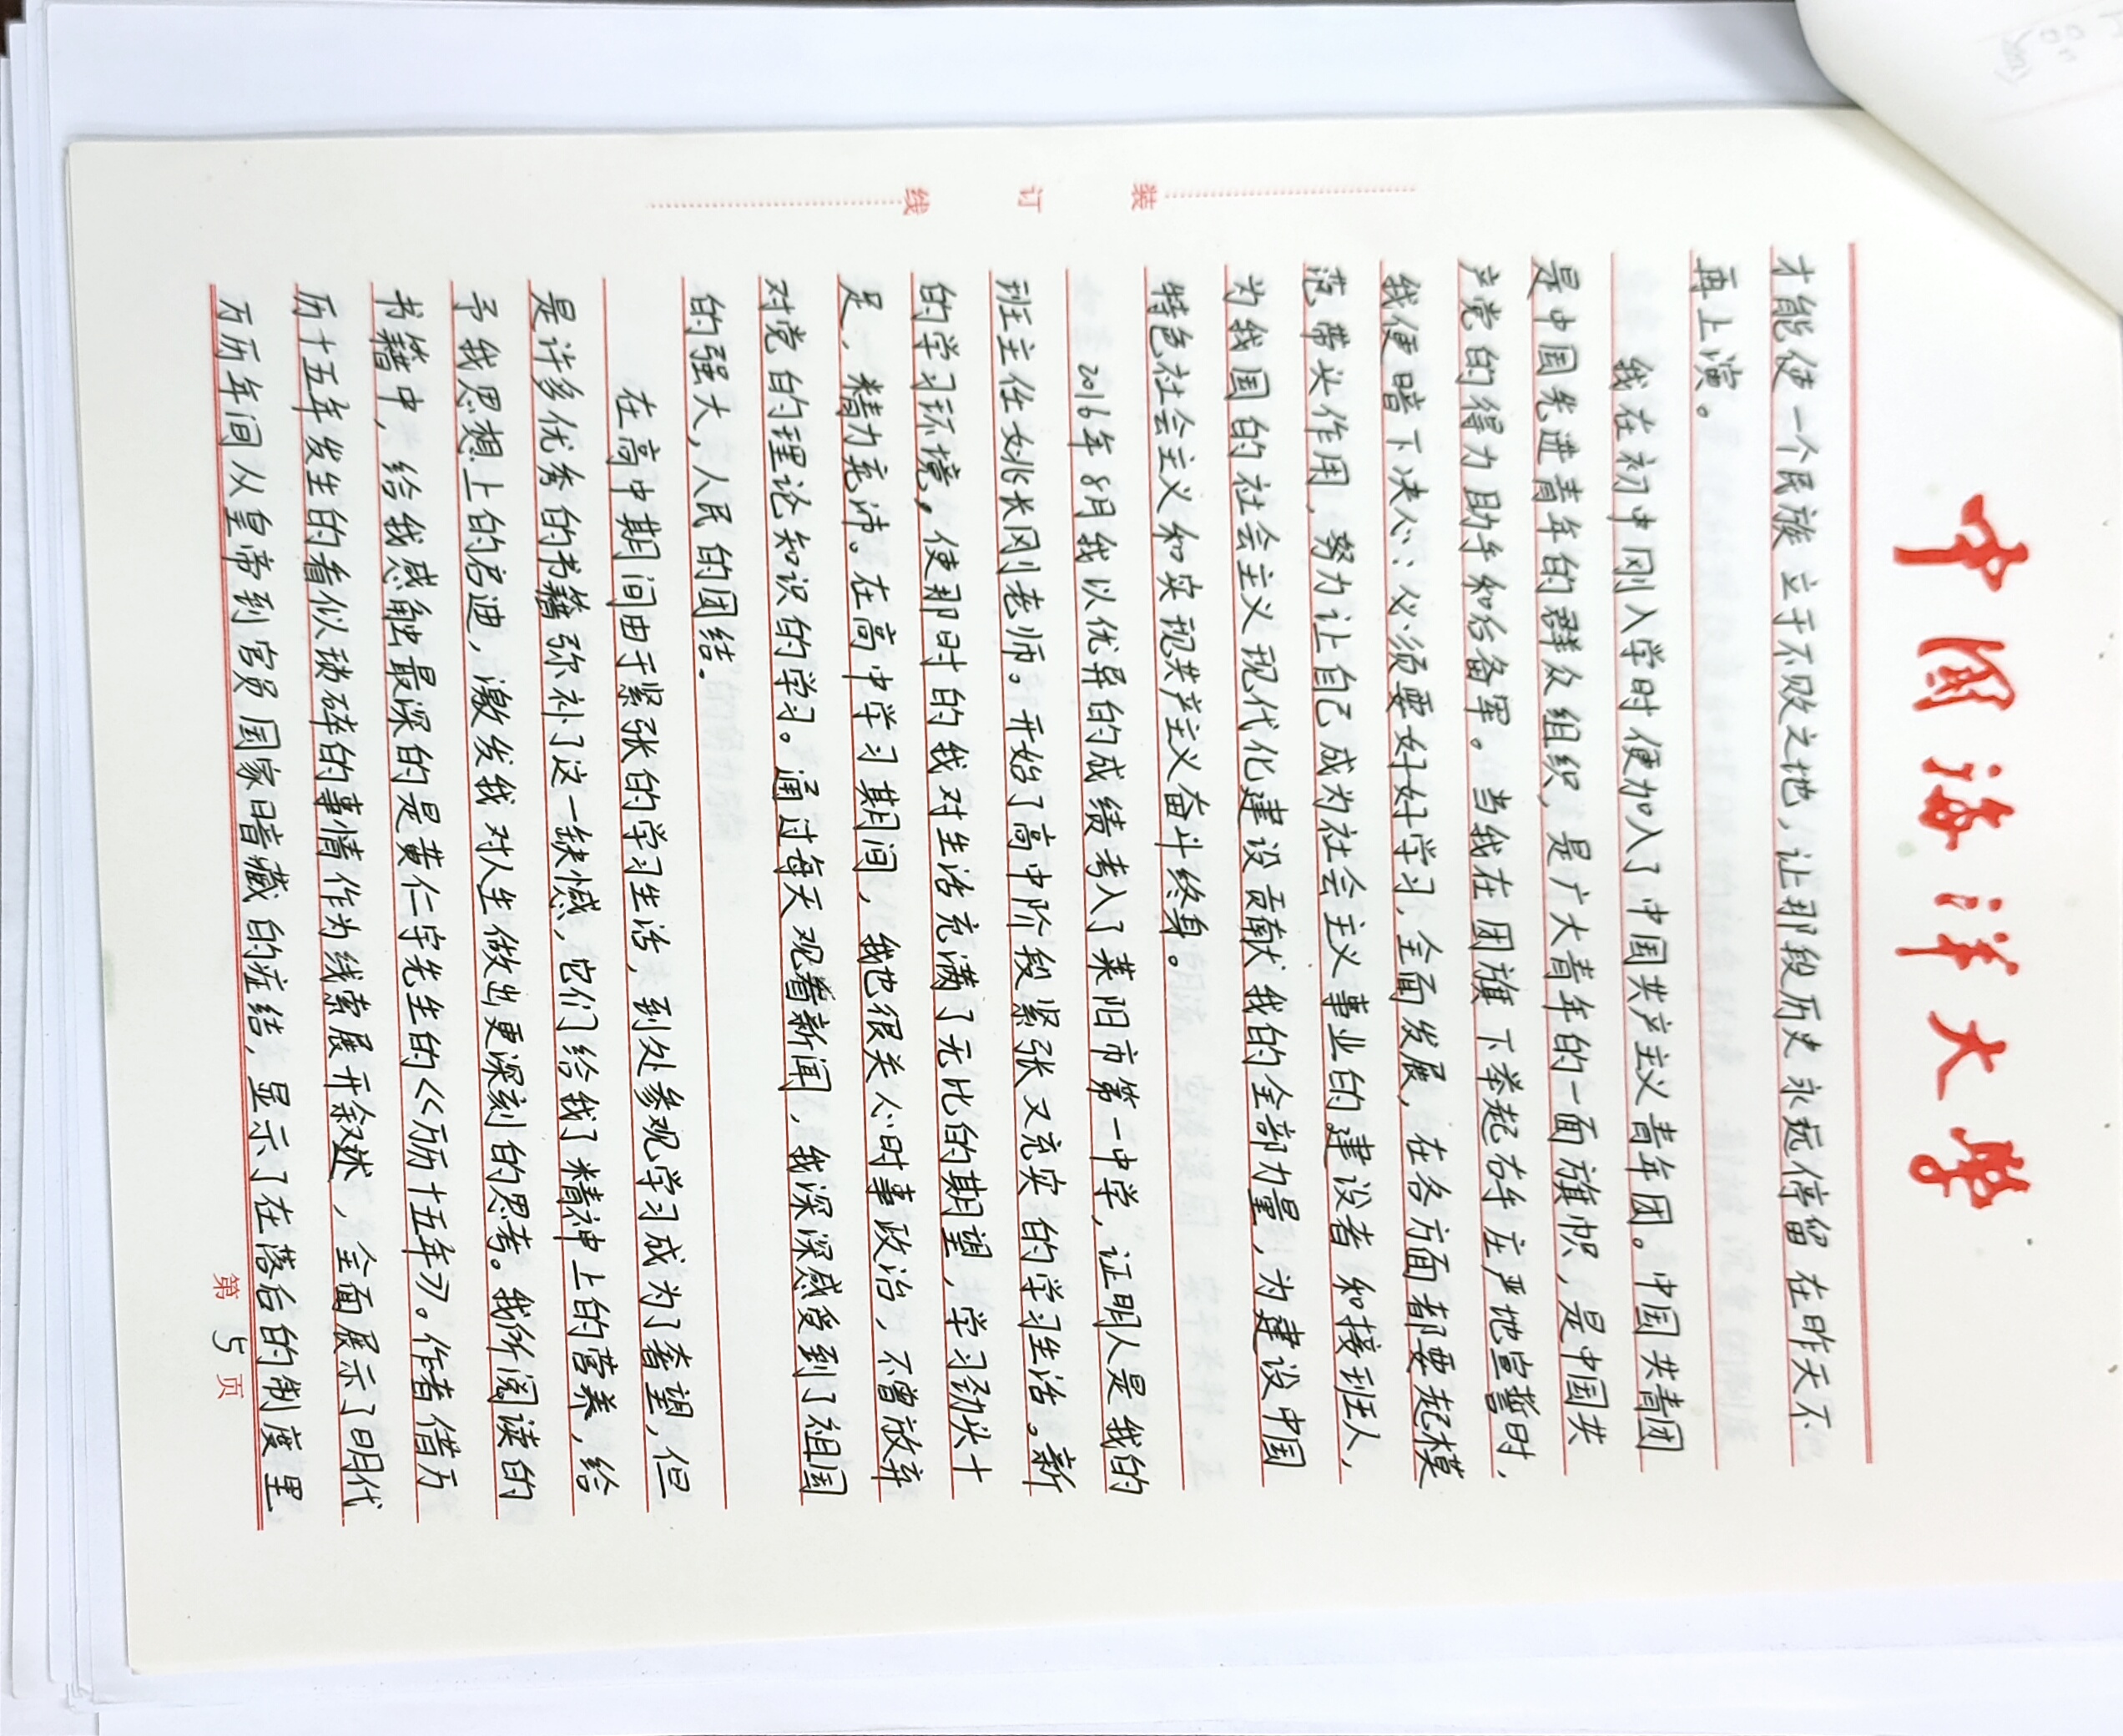 中国海洋大学
才能使一个民族立于不败之地,让那段历史永远停留在昨天不
再上演。
我在初中刚入学时便加入了中国共产主义青年团。中国共青团
是中国先进青年的群众组织,是广大青年的一面旗帜,是中国共
产党的得力助手和后备军。当我在团旗下举起右手庄严地宣誓时,
我便暗下决心:必须要好好学习,全面发展,在各方面都要起模
范带头作用,努力让自己成为社会主义事业的建设者和接班人,
为我国的社会主义现代化建设贡献我的全部力量,为建设中国
特色社会主义和实现共产主义奋斗终身。
2016年8月我以优异的成绩考入了莱阳市第一中学,证明人是我的
班主任姚长刚老师。开始了高中阶段紧张又充实的学习生活。新
的学习环境,使那时的我对生活充满了无比的期望,学习劲头十
足,精力充沛。在高中学习期间,我也很关心时事政治,不曾放弃
对党的理论知识的学习。通过每天观看新闻,我深深感受到了祖国
的强大,人民的团结.
在高中期间由于紧张的学习生活,到处参观学习成为了奢望,但
是许多优秀的书籍弥补了这一缺憾,它们给我了精神上的营养,给
予我思想上的启迪,激发我对人生做出更深刻的思考。我所阅读的
书籍中,给我感触最深的是黄仁宇先生的《万历十五年》。作者借万
历十五年发生的看似琐碎的事情作为线索展开叙述,全面展示了明代
万历年间从皇帝到官员国家暗藏的症结,显示了在落后的制度里
第5页
装
订
线